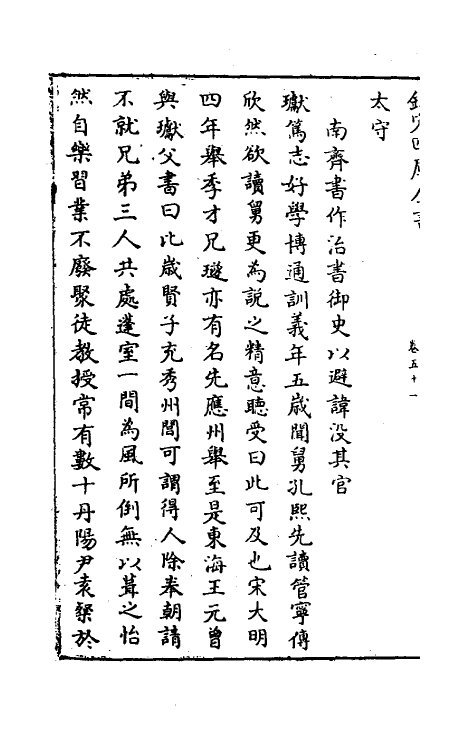 欽定四庫全書
卷五十一
太守
南齊書作治書御史以避諱没其官
瓛篤志好學博通訓義年五歳聞舅孔熙先讀管寧傳
欣然欲讀舅更為說之精意聽受曰此可及也宋大明
四年舉秀才兄璲亦有名先應州舉至是東海王元曾
與瓛父書曰比歳賢子充秀州閭可謂得人除奉朝請
不就兄弟三人共處蓬室一間為風所倒無以葺之怡
然自樂習業不廢聚徒教授常有數十丹陽尹袁粲於